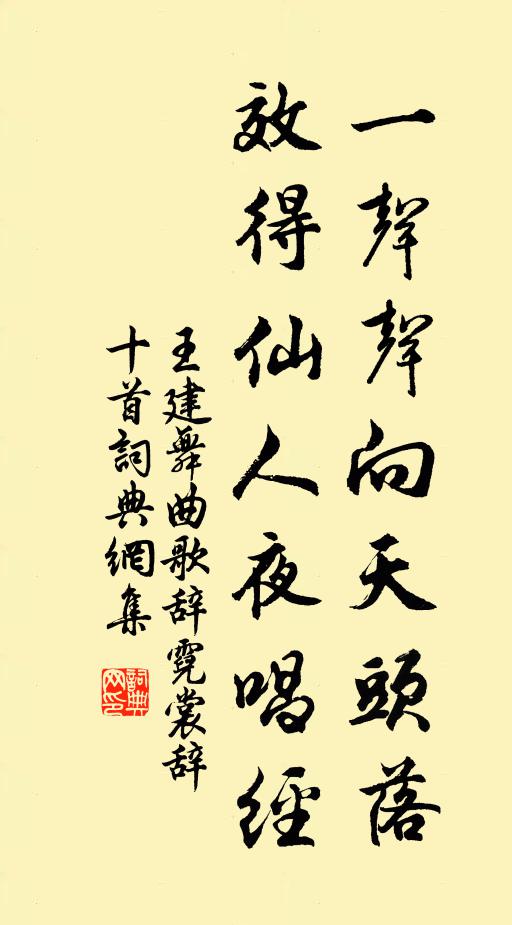 一聲聲向天頭落
效得仙人夜唱經
王建舞曲歌辞霓裳辞
十首詞典網集
詞典
网印